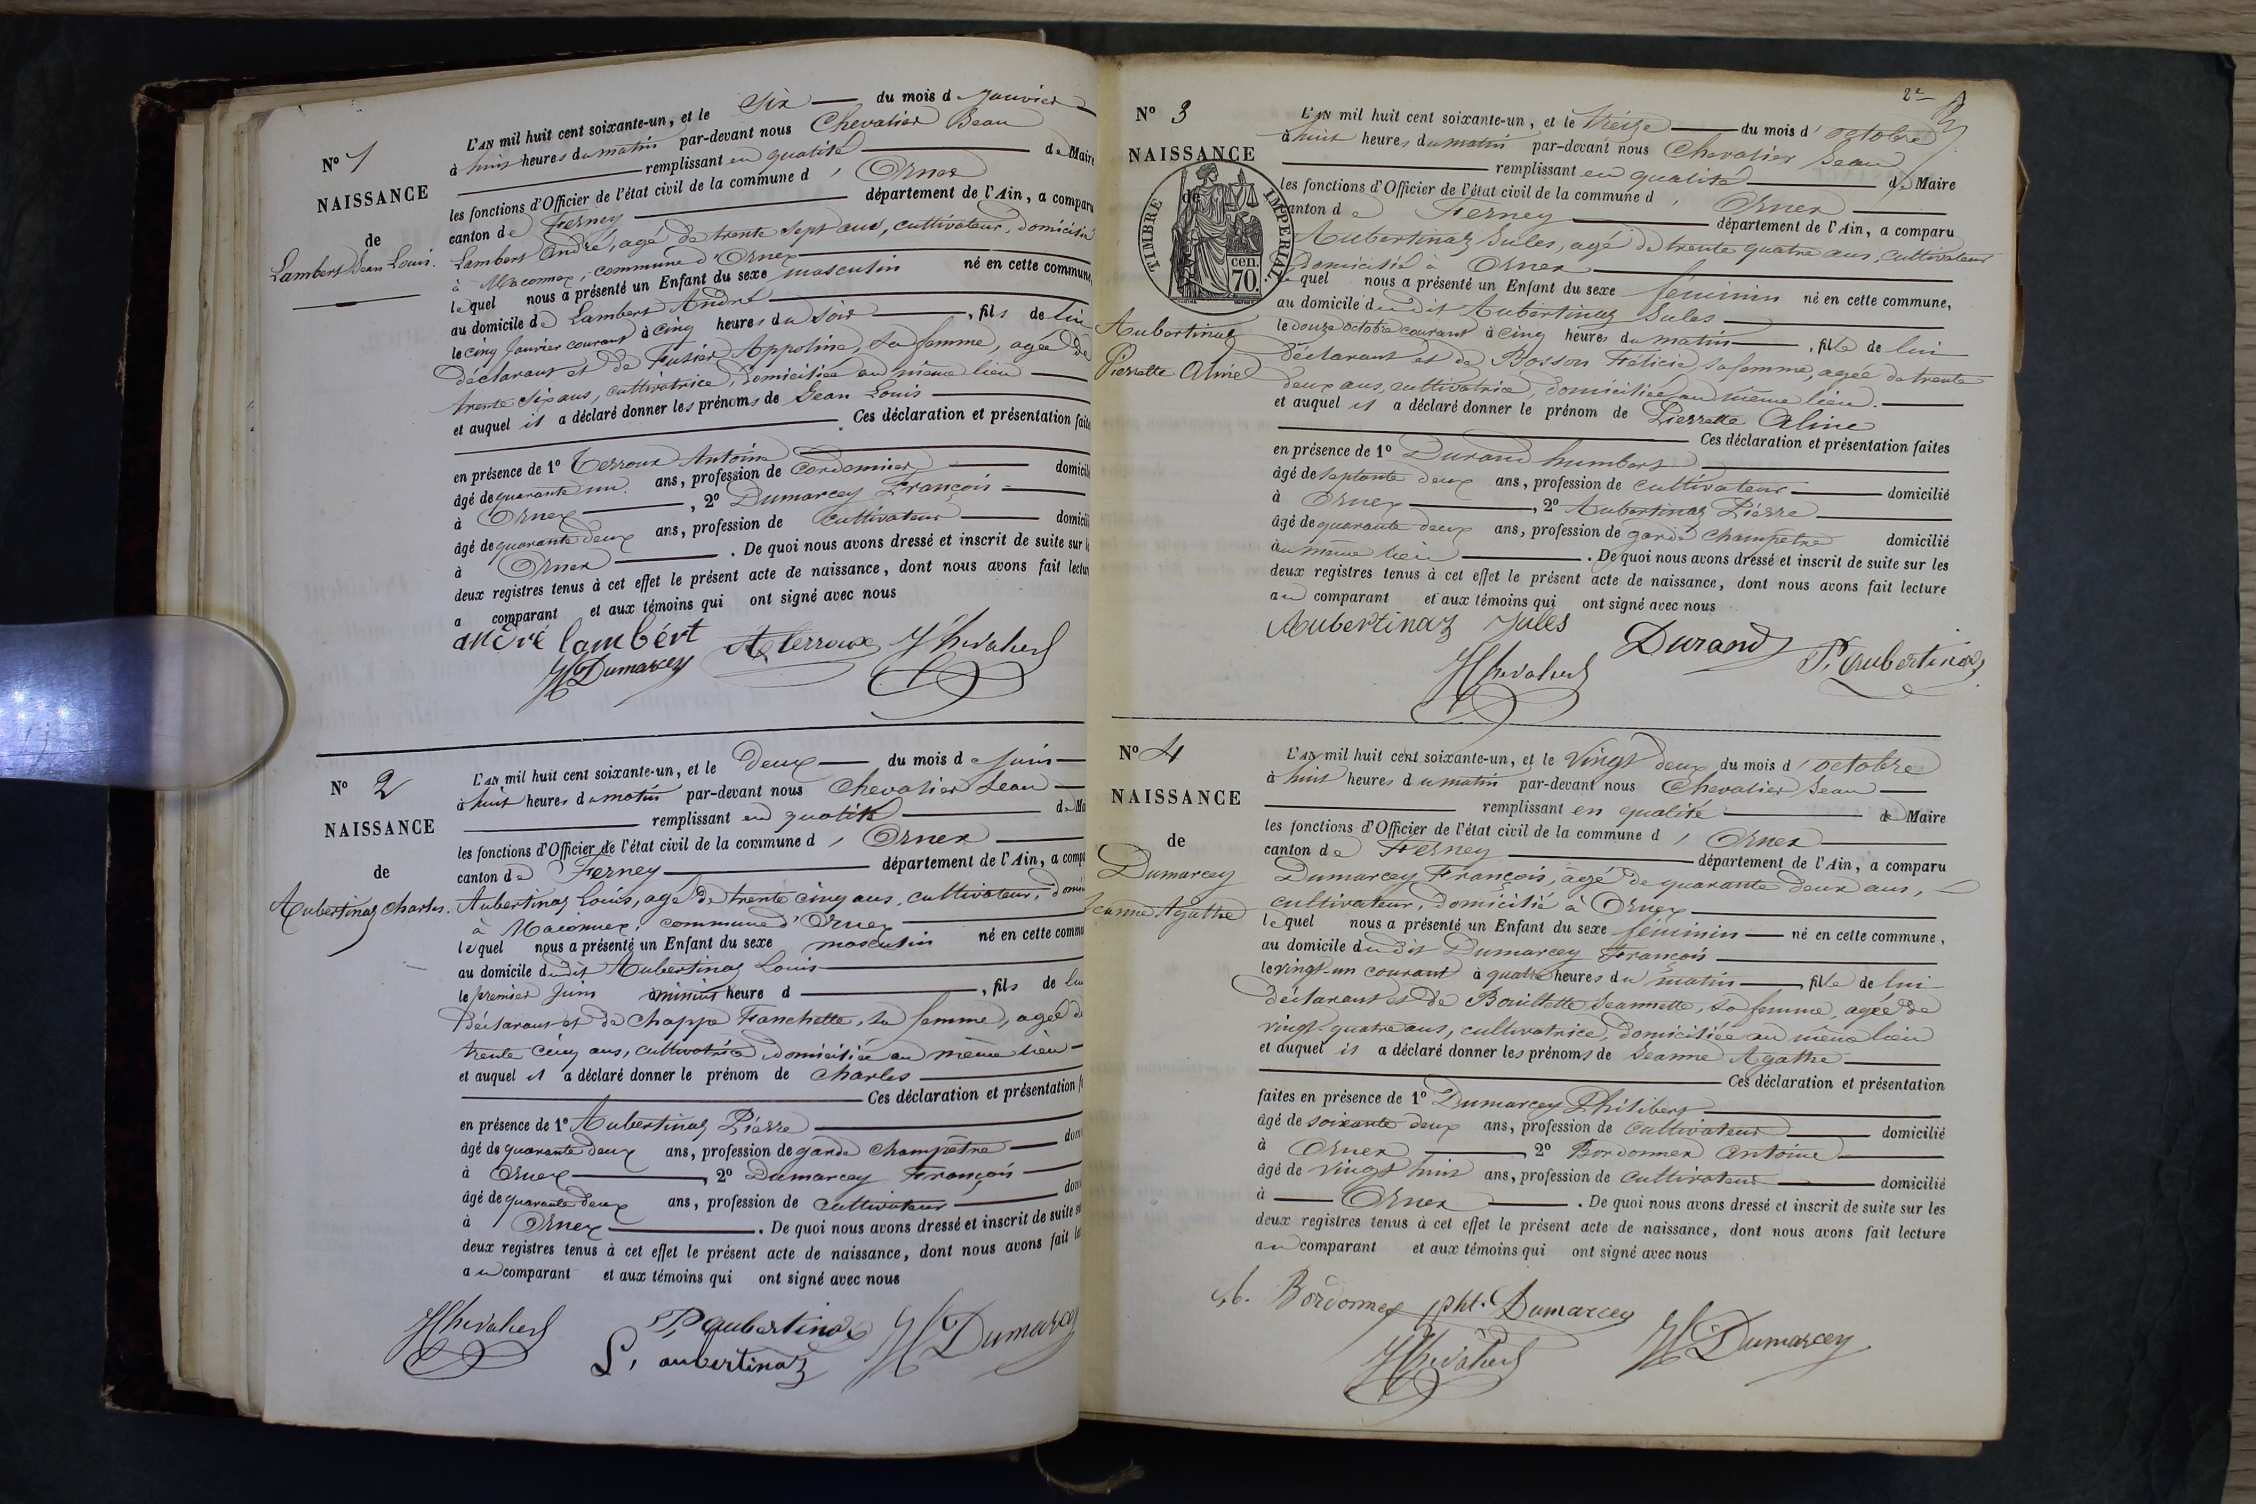 N° 1
NAISSANCE
de
Lambert Jean Louis.
L'AN mil huit cent soixante-un, et le Six du mois d Janvier
à huit heures du matin par-devant nous Chevalier Jean
remplissant en qualité de Maire
les fonctions d'Officier de l'état civil de la commune d' Ornex
canton de Ferney département de l'Ain, a comparu
Lambert André, agé de trente sept ans, cultivateur, domicilié
à Maconnex, commune d'Ornex
lequel nous a présenté un Enfant du sexe masculin né en cette commune,
au domicile de Lambert André
le cinq Janvier courant à cinq heures du soir, fils de lui
déclarant et de Fusier Appoline, sa femme, agée de
trente six ans, cultivatrice, domiciliée au même lieu
et auquel il a déclaré donner les prénoms de Jean Louis
Ces déclaration et présentation faite
en présence de 1° Terroux Antoine
âgé de quarante un ans, profession de Cordonnier domicil
à Ornex, 2° Dumarcey François
âgé de quarante deux ans, profession de cultivateur domicil
à Ornex. De quoi nous avons dressé et inscrit de suite sur l
deux registres tenus à cet effet le présent acte de naissance, dont nous avons fait lectur
a comparant et aux témoins qui ont signé avec nous
andré lambért A terroux J Chevalier
F Dumarcey
N° 2
NAISSANCE
de
Aubertinaz Charles.
L'AN mil huit cent soixante-un, et le deux du mois de Juin
à huit heures du matin par-devant nous Chevalier Jean
remplissant en qualité de Ma
les fonctions d'Officier de l'état civil de la commune d' Ornex
canton de Ferney département de l'Ain, a comp
Aubertinaz Louis, agé de trente cinq ans, cultivateur, domi
à Maconnex, commune d'Ornex
lequel nous a présenté un Enfant du sexe masculin né en cette commu
au domicile dudit Aubertinaz Louis
le premier Juin à minuit heure d, fils de lui
déclarant et de Chappe Fanchette, sa femme, agée de
trente cinq ans, cultivatrice domiciliée au même lieu
et auquel il a déclaré donner le prénom de Charles
Ces déclaration et présentation f
en présence de 1° Aubertinaz Pierre
âgé de quarante deux ans, profession de garde champêtre domi
à Ornex, 2° Dumarcey François
âgé de quarante deux ans, profession de cultivateur domi
à Ornex. De quoi nous avons dressé et inscrit de suite s
deux registres tenus à cet effet le présent acte de naissance, dont nous avons fait le
au comparant et aux témoins qui ont signé avec nous
J Chevalier P aubertinaz F Dumarcey
L, aubertinaz
2e
N° 3
NAISSANCE
de
TIMBRE IMPÉRIAL.
cen.
70.
Aubertinaz
Pierrette Aline
L'AN mil huit cent soixante-un, et le treize du mois d'octobre
à huit heures du matin par-devant nous Chevalier Jean
remplissant en qualité de Maire
les fonctions d'Officier de l'état civil de la commune d' Ornex
canton de Ferney département de l'Ain, a comparu
Aubertinaz Jules, agé de trente quatre ans, cultivateur
domicilié à Ornex
lequel nous a présenté un Enfant du sexe féminin né en cette commune,
au domicile dudit Aubertinaz Jules
le douze octobre courant à cinq heures du matin, fille de lui
déclarant et de Bosson Félicie, sa femme, agée de trente
deux ans, cultivatrice, domiciliée au même lieu.
et auquel il a déclaré donner le prénom de Pierrette Aline
Ces déclaration et présentation faites
en présence de 1° Durand humbert
âgé de septante deux ans, profession de cultivateur domicilié
à Ornex, 2° Aubertinaz Pierre
âgé de quarante deux ans, profession de garde champêtre domicilié
au même lieu. De quoi nous avons dressé et inscrit de suite sur les
deux registres tenus à cet effet le présent acte de naissance, dont nous avons fait lecture
au comparant et aux témoins qui ont signé avec nous
Aubertinaz Jules Durand P, aubertinaz
J Chevalier
N° 4
NAISSANCE
de
Dumarcey
Jeanne Agathe
L'AN mil huit cent soixante-un, et le vingt deux du mois d'octobre
à huit heures du matin par-devant nous Chevalier Jean
remplissant en qualité de Maire
les fonctions d'Officier de l'état civil de la commune d' Ornex
canton de Ferney département de l'Ain, a comparu
Dumarcey François, agé de quarante deux ans,
cultivateur, domicilié à Ornex
lequel nous a présenté un Enfant du sexe féminin né en cette commune,
au domicile dudit Dumarcey François
le vingt-un courant à quatre heures du matin, fille de lui
déclarant et de Bouillette Jeannette, sa femme, agée de
vingt-quatre ans, cultivatrice, domiciliée au même lieu
et auquel il a déclaré donner les prénoms de Jeanne Agathe
Ces déclaration et présentation
faites en présence de 1° Dumarcey Philibert
âgé de soixante deux ans, profession de cultivateur domicilié
à Ornex, 2° Bordonnex Antoine
âgé de vingt huit ans, profession de cultivateur domicilié
à Ornex. De quoi nous avons dressé et inscrit de suite sur les
deux registres tenus à cet effet le présent acte de naissance, dont nous avons fait lecture
au comparant et aux témoins qui ont signé avec nous
Bordonnex phl. Dumarcey
J Chevalier F Dumarcey